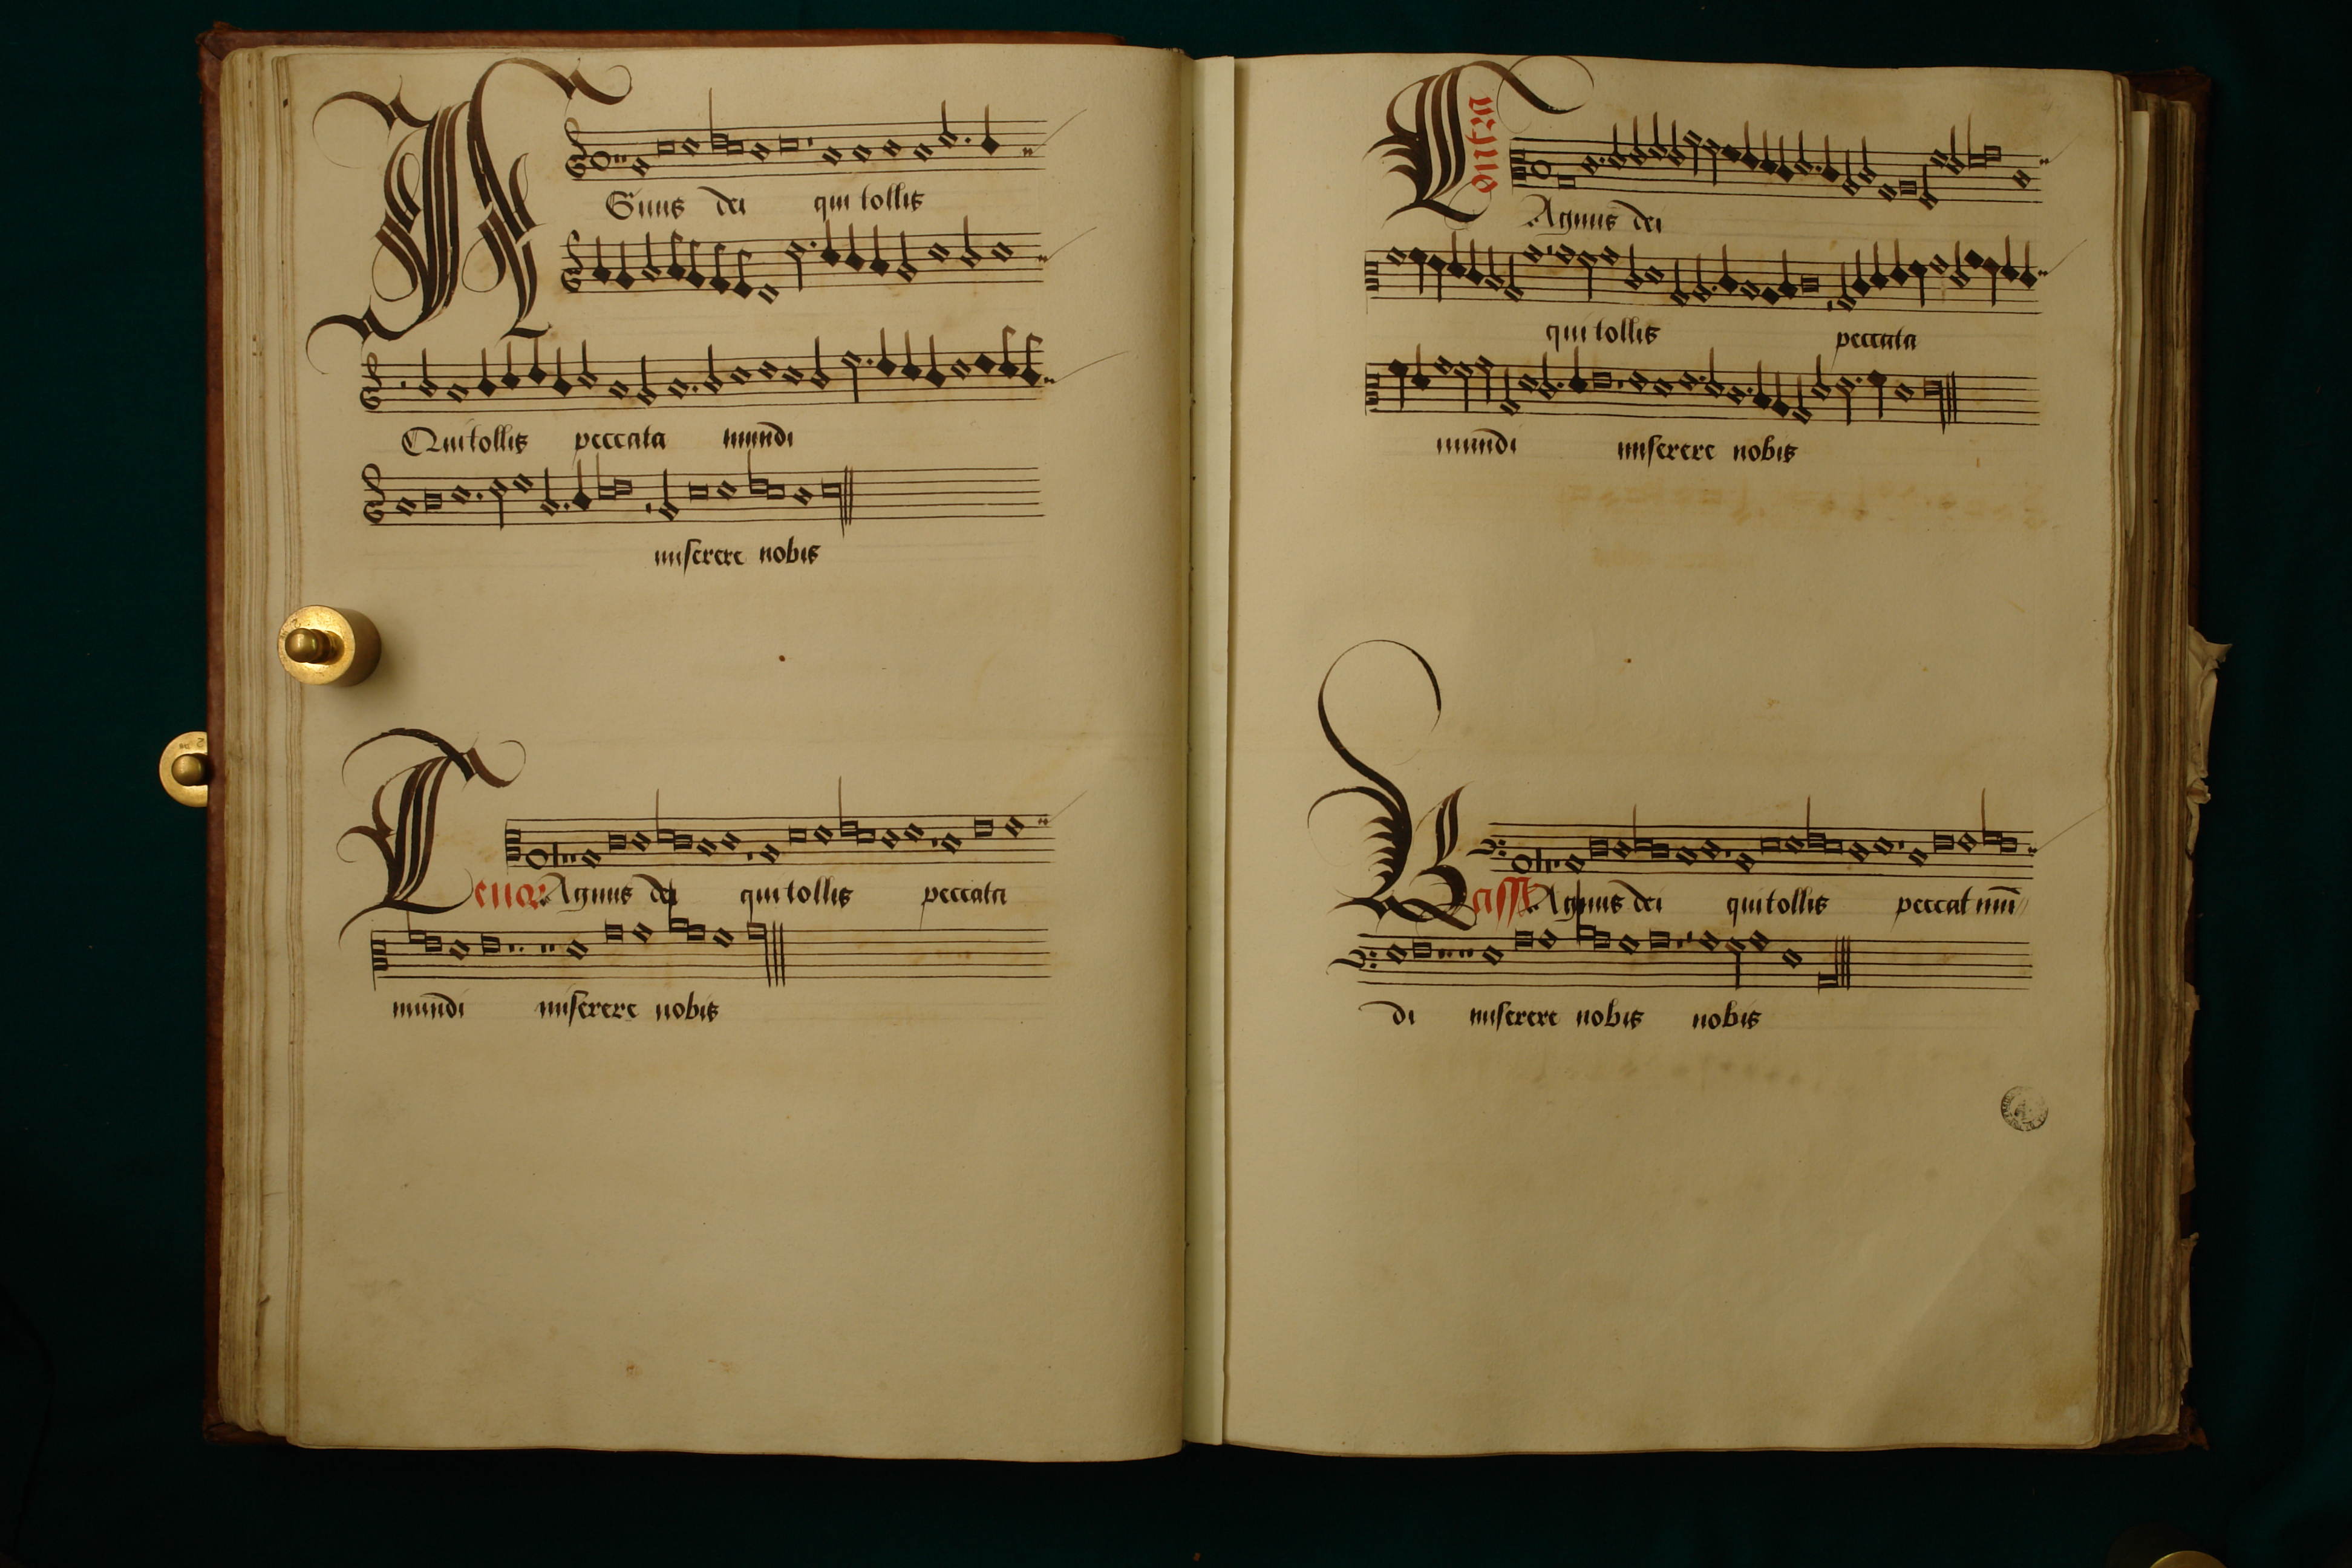 AGnus dei qui tollis
Qui tollis peccata mundi
miserere nobis
Tenor Agnus dei qui tollis peccata
mundi miserere nobis
Agnus dei
qui tollis peccata
mundi miserere nobis
Agnus dei qui tollis peccat mū
di miserere nobis nobis